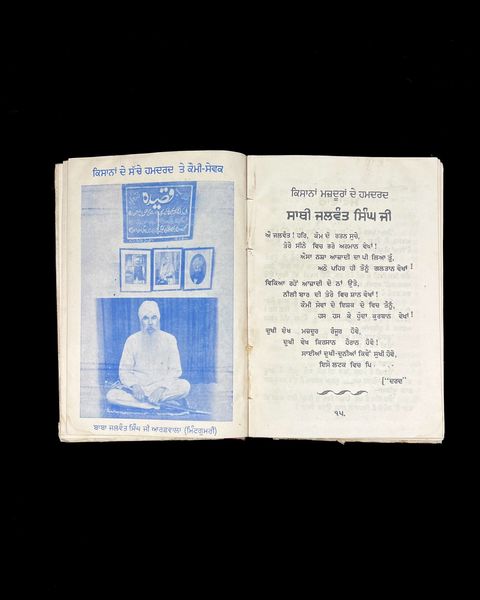 ਕਿਸਾਨਾਂ ਦੇ ਸੱਚੇ ਹਮਦਰਦ ਤੇ ਕੌਮੀ-ਸੇਵਕ
قصیدہ
ਬਾਬਾ ਜਲਵੰਤ ਸਿੰਘ ਜੀ ਆਰਫਵਾਲਾ (ਮਿੰਟਗੁਮਰੀ)
ਕਿਸਾਨਾਂ ਮਜ਼ਦੂਰਾਂ ਦੇ ਹਮਦਰਦ
ਸਾਥੀ ਜਲਵੰਤ ਸਿੰਘ ਜੀ
ਐ ਜਲਵੰਤ ! ਹਰਿ, ਕੌਮ ਦੇ ਰਤਨ ਸੁਚੇ,
ਤੇਰੇ ਸੀਨੇ ਵਿਚ ਭਰੇ ਅਰਮਾਨ ਵੇਖਾਂ !
ਐਸਾ ਨਸ਼ਾ ਆਜ਼ਾਦੀ ਦਾ ਪੀ ਲਿਆ ਤੂੰ,
ਅਠੇ ਪਹਿਰ ਹੀ ਤੈਨੂੰ ਗਲਤਾਨ ਵੇਖਾਂ !
ਵਿਕਿਆ ਰਹੇਂ ਆਜ਼ਾਦੀ ਦੇ ਨਾਂ ਉਤੇ,
ਨੀਲੀ ਬਾਰ ਦੀ ਤੇਰੇ ਵਿਚ ਸ਼ਾਨ ਵੇਖਾਂ !
ਕੌਮੀ ਸੇਵਾ ਦੇ ਇਸ਼ਕ ਦੇ ਵਿਚ ਤੈਨੂੰ,
ਹਸ ਹਸ ਕੇ ਹੁੰਦਾ ਕੁਰਬਾਨ ਵੇਖਾਂ !
ਦੁਖੀ ਦੇਖ ਮਜ਼ਦੂਰ ਰੰਜੂਰ ਹੋਵੇ,
ਦੁਖੀ ਦੇਖ ਕਿਰਸਾਨ ਹੈਰਾਨ ਹੋਵੇ !
ਸਾਈਆਂ ਦੁਖੀ-ਦੁਨੀਆਂ ਕਿਵੇਂ ਸੁਖੀ ਹੋਵੇ,
ਇਸੇ ਲਟਕ ਵਿਚ ਪਿ
["ਦਰਦ"
੧੫.